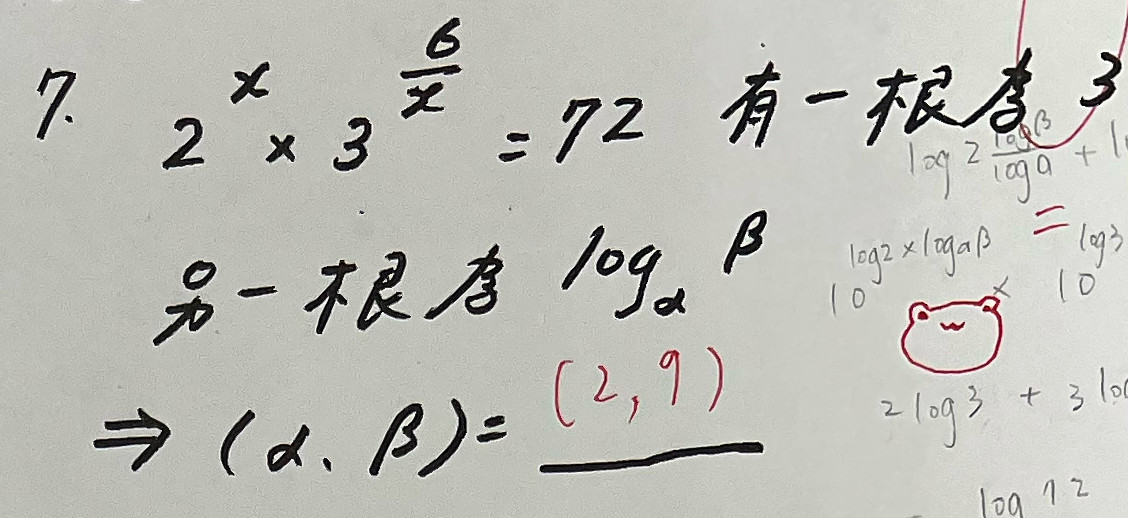 7. 2^x × 3^(6/x) = 72 有一根為 3
另一根為 log_α β
⇒ (α、β) = (2,9)
log 2 logβ/logα +
10^(log2×logαβ) = 10^(log3
2log3 + 3
log 72